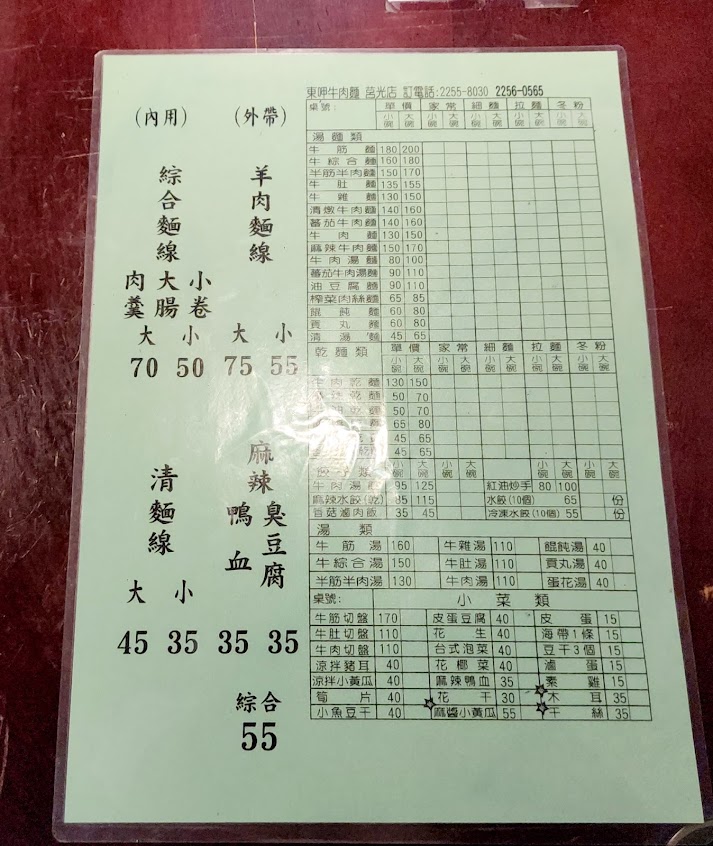 東呷牛肉麵 莒光店 訂電話:2255-8030 2256-0565
桌號: 單價 家常 細麵 拉麵 冬粉
小碗 大碗 小碗 大碗 小碗 大碗 小碗 大碗 小碗 大碗
湯麵類
牛筋麵 180 200
牛綜合麵 160 180
半筋半肉麵 150 170
牛肚麵 135 155
牛雜麵 130 150
清燉牛肉麵 140 160
蕃茄牛肉麵 140 160
牛肉麵 130 150
麻辣牛肉麵 150 170
牛肉湯麵 80 100
蕃茄牛肉湯麵 90 110
油豆腐麵 90 110
榨菜肉絲麵 65 85
餛飩麵 60 80
貢丸麵 60 80
清湯麵 45 65
乾麵類 單價 家常 細麵 拉麵 冬粉
小碗 大碗 小碗 大碗 小碗 大碗 小碗 大碗 小碗 大碗
牛肉乾麵 130 150
乾麵 50 70
乾麵 50 70
麵 65 80
45 65
乾 45 65
小碗 大碗 小碗 大碗 小碗 大碗
牛肉湯 95 125 紅油炒手 80 100
麻辣水餃(乾) 85 115 水餃(10個) 65 份
香菇滷肉飯 35 45 冷凍水餃(10個) 55 份
湯類
牛筋湯 160 牛雜湯 110 餛飩湯 40
牛綜合湯 150 牛肚湯 110 貢丸湯 40
半筋半肉湯 130 牛肉湯 110 蛋花湯 40
桌號: 小菜類
牛筋切盤 170 皮蛋豆腐 40 皮蛋 15
牛肚切盤 110 花生 40 海帶1條 15
牛肉切盤 110 台式泡菜 40 豆干3個 15
涼拌豬耳 40 花椰菜 40 滷蛋 15
涼拌小黃瓜 40 麻辣鴨血 35 素雞 15
筍片 40 花干 30 木耳 35
小魚豆干 40 麻醬小黃瓜 55 干絲 35
(外帶)
羊肉麵線
大 小
75 55
(內用)
綜合麵線
小卷
大腸
肉羹
大 小
70 50
麻辣
臭豆腐
鴨血
35 35
綜合
55
清麵線
大 小
45 35